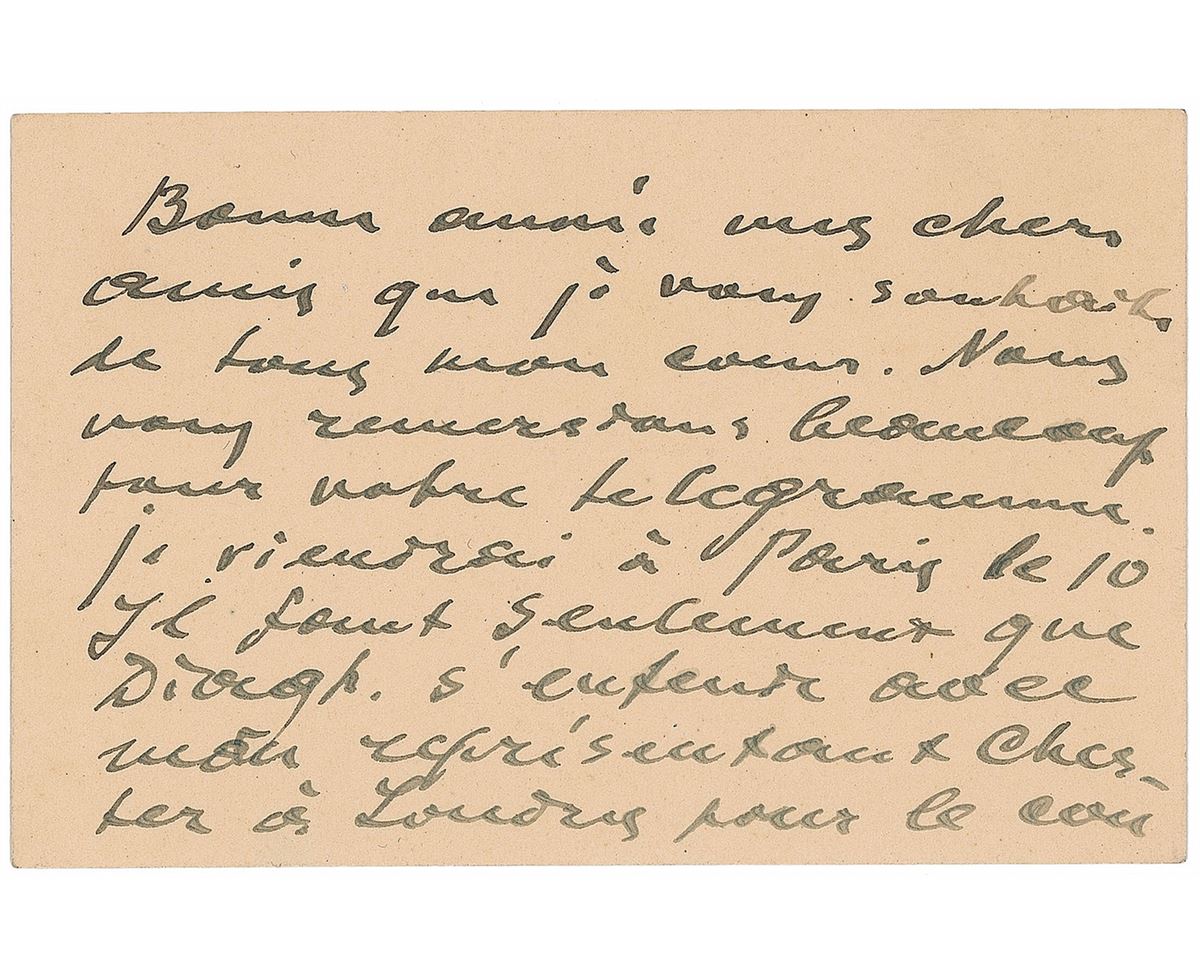 Bonne année mes chers
amis que je vous souhaite
de tous mon coeur. Nous
vous remersions beaucoup
pour votre telegramme.
je viendrai à Paris le 10
Il faut seulement que
Diagh. s'entende avec
mon représentant Ches-
ter à Londres pour le cou